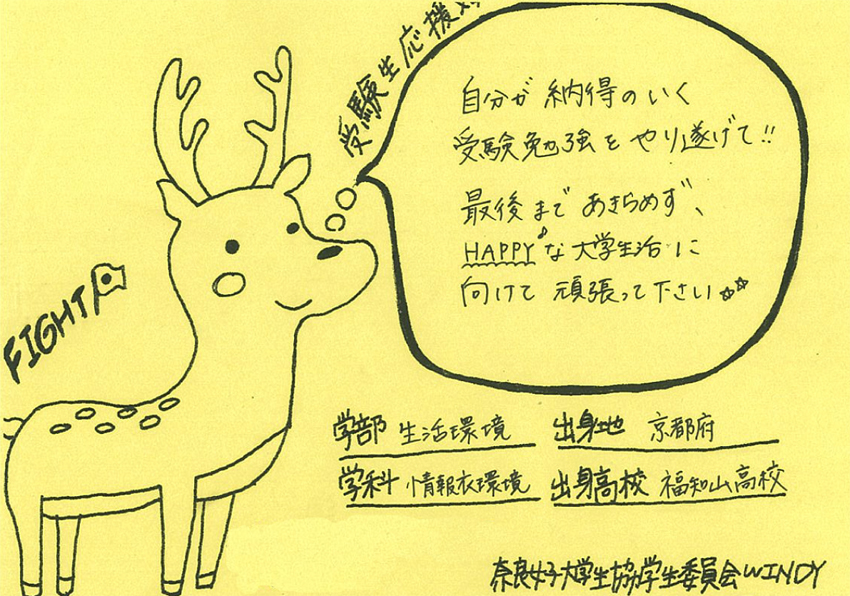 受験生応援
自分が納得のいく
受験勉強をやり遂げて!!
最後まであきらめず、
HAPPY♪な大学生活に
向けて頑張って下さい☆☆
FIGHT
学部 生活環境
出身地 京都府
学科 情報衣環境
出身高校 福知山高校
奈良女子大学生協学生委員会WINDY